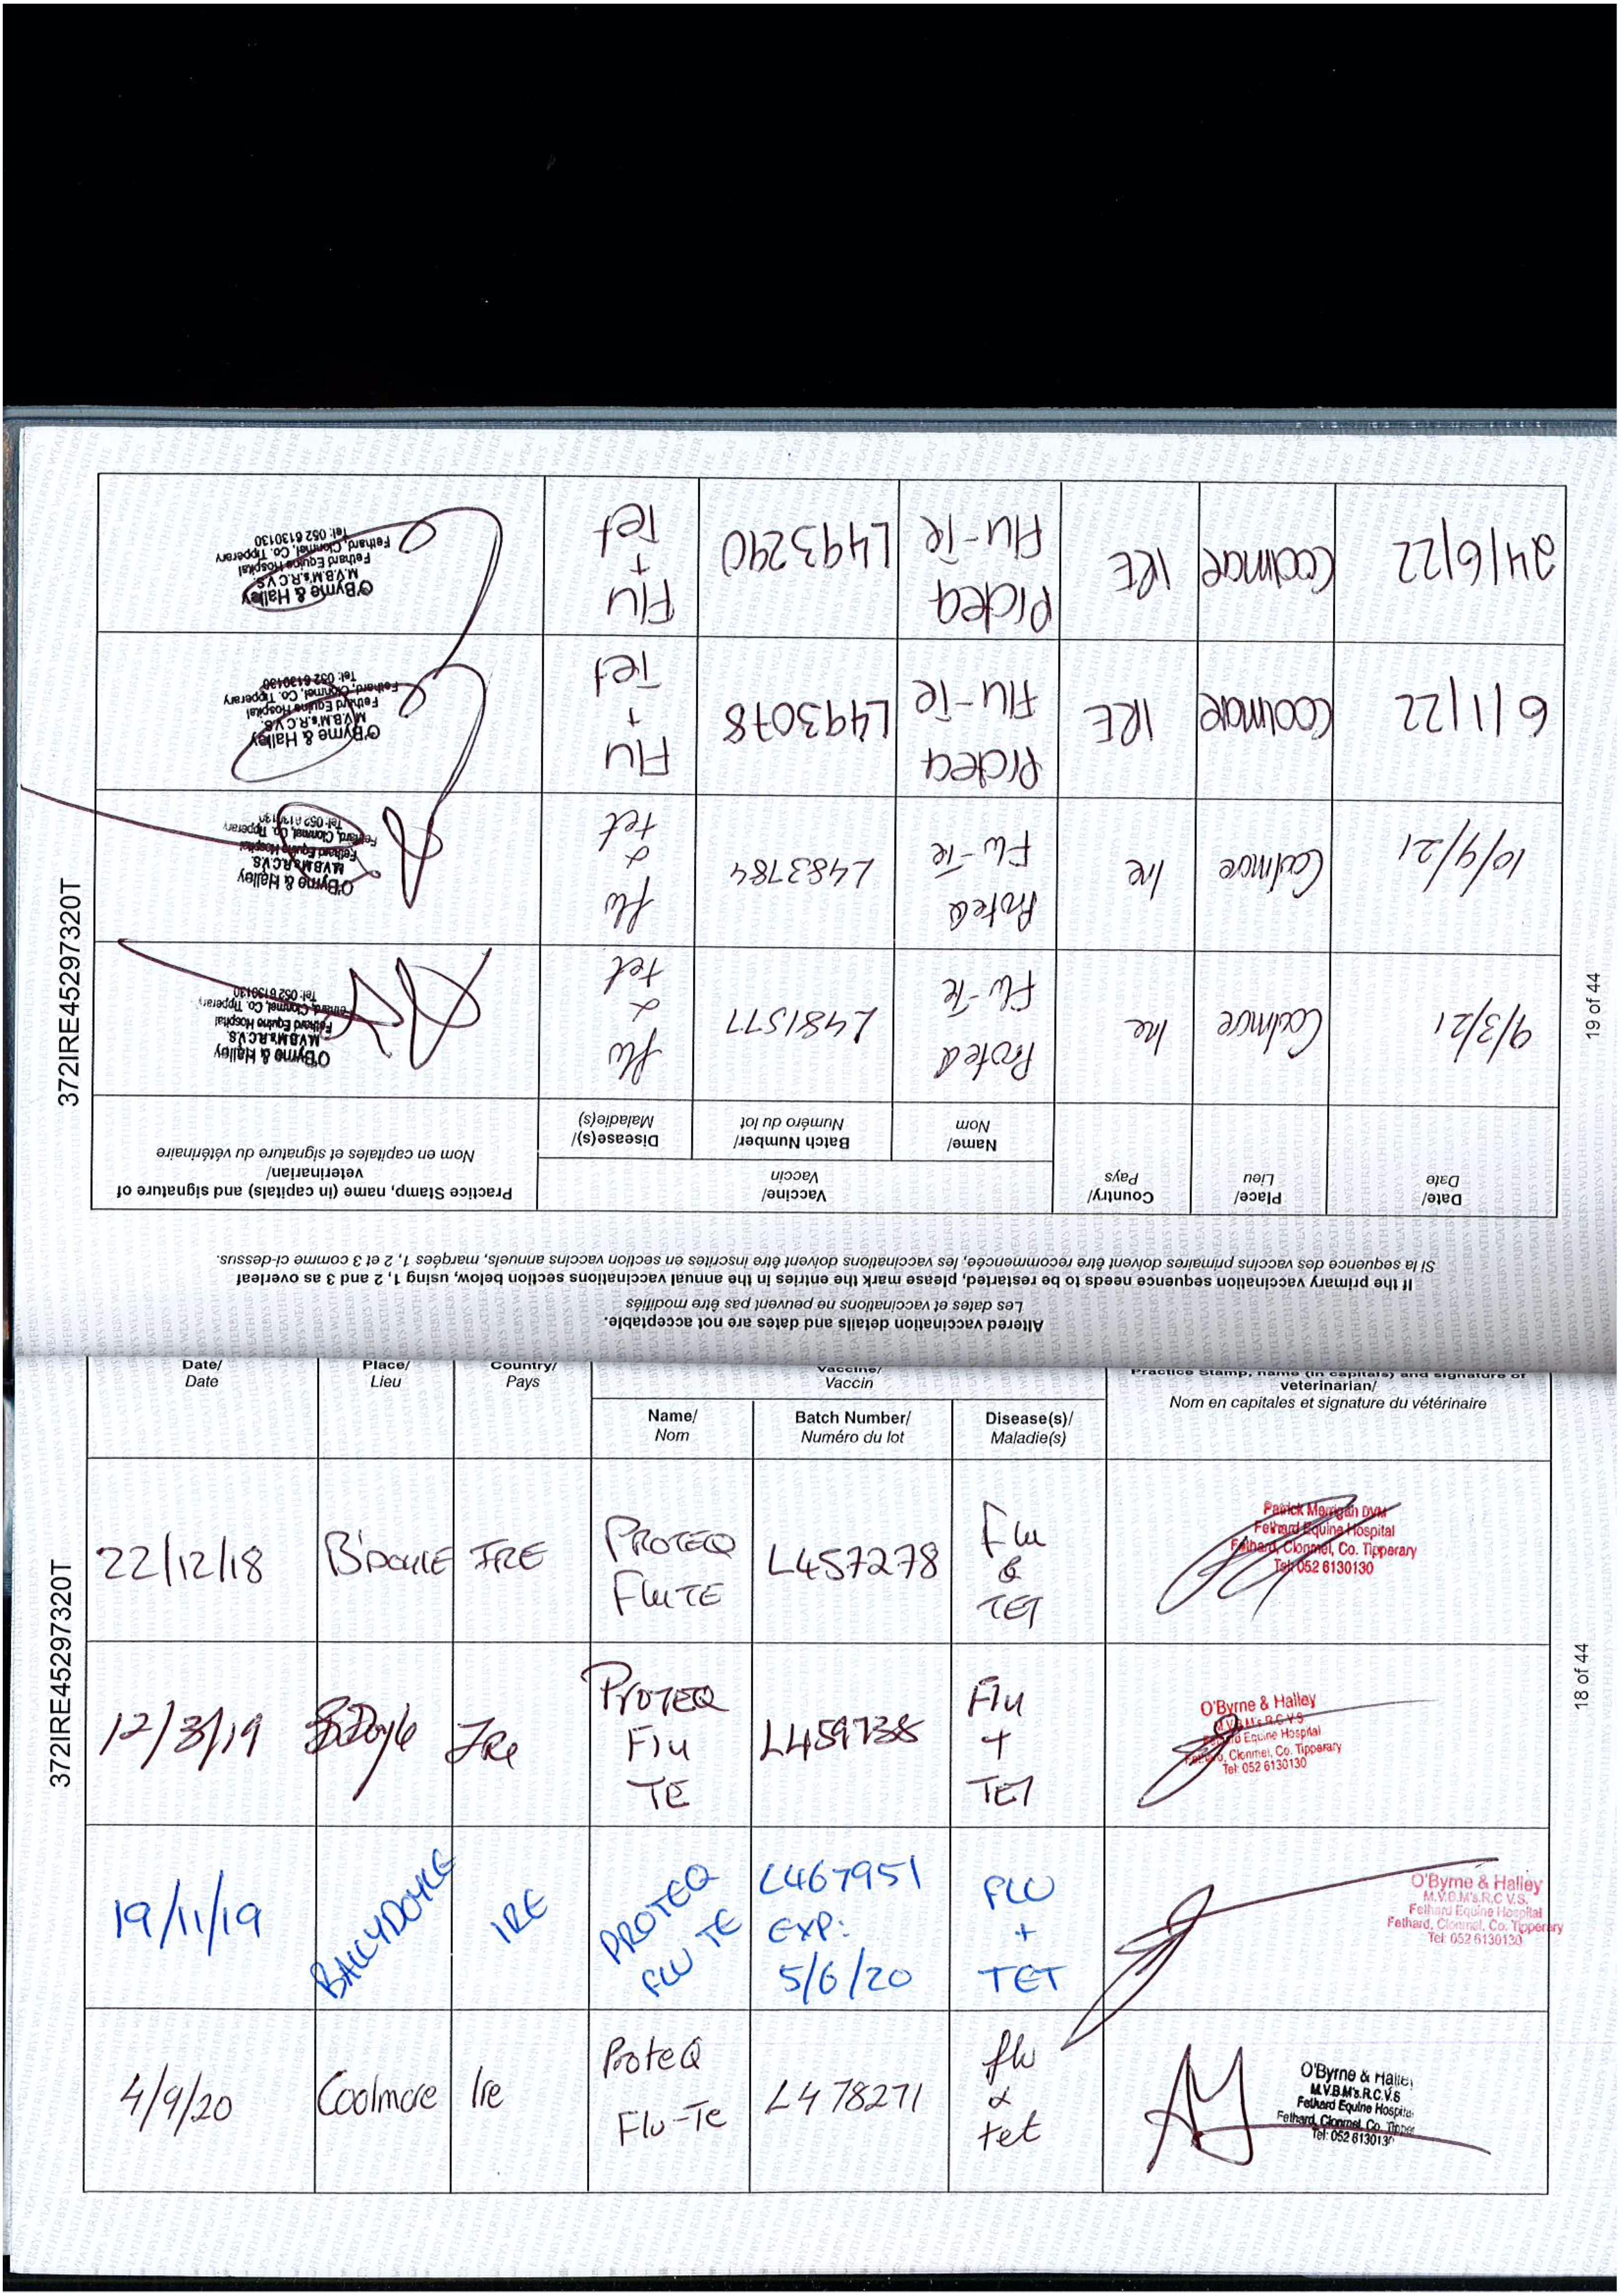 Date/
Date
Place/
Lieu
Country/
Pays
Vaccine/
Vaccin
Practice Stamp, name (in capitals) and signature of
veterinarian/
Nom en capitales et signature du vétérinaire
Name/
Nom
Batch Number/
Numéro du lot
Disease(s)/
Maladie(s)
22/12/18
B'DOYLE
IRE
PROTEQ
Flu TE
L457278
Flu
&
TET
Patrick Merrigan DVM
Fethard Equine Hospital
Fethard, Clonmel, Co. Tipperary
Tel: 052 6130130
12/3/19
B'Doyle
IRe
PROTEQ
Flu
TE
L459738
Flu
+
TET
O'Byrne & Halley
M.V.B.M's.R.C.V.S.
Fethard Equine Hospital
Fethard, Clonmel, Co. Tipperary
Tel: 052 6130130
19/11/19
BALLYDOYLE
IRE
PROTEQ
FLU TE
L467951
EXP:
5/6/20
FLU
+
TET
O'Byrne & Halley
M.V.B.M's.R.C.V.S.
Fethard Equine Hospital
Fethard, Clonmel, Co. Tipperary
Tel: 052 6130130
4/9/20
Coolmore
Ire
ProteQ
Flu-Te
L478271
flu
&
tet
O'Byrne & Halley
M.V.B.M's.R.C.V.S
Fethard Equine Hospital
Fethard, Clonmel, Co. Tipper
Tel: 052 6130130
372IRE45297320T
18 of 44
Altered vaccination details and dates are not acceptable.
Les dates et vaccinations ne peuvent pas être modifiés
If the primary vaccination sequence needs to be restarted, please mark the entries in the annual vaccinations section below, using 1, 2 and 3 as overleaf
Si la sequence des vaccins primaires doivent être recommencée, les vaccinations doivent être inscrites en section vaccins annuels, marqées 1, 2 et 3 comme ci-dessus.
Date/
Date
Place/
Lieu
Country/
Pays
Vaccine/
Vaccin
Practice Stamp, name (in capitals) and signature of
veterinarian/
Nom en capitales et signature du vétérinaire
Name/
Nom
Batch Number/
Numéro du lot
Disease(s)/
Maladie(s)
9/3/21
Coolmore
Ire
ProteQ
Flu-Te
L481577
flu
&
tet
O'Byrne & Halley
M.V.B.M's.R.C.V.S.
Fethard Equine Hospital
Fethard, Clonmel, Co. Tipperary
Tel: 052 6130130
10/9/21
Coolmore
Ire
ProteQ
Flu-Te
L483784
flu
&
tet
O'Byrne & Halley
M.V.B.M's.R.C.V.S.
Fethard Equine Hospital
Fethard, Clonmel, Co. Tipperary
Tel: 052 6130130
6/1/22
Coolmore
IRE
Proteq
Flu-Te
L493078
Flu
+
Tet
O'Byrne & Halley
M.V.B.M's.R.C.V.S.
Fethard Equine Hospital
Fethard, Clonmel, Co. Tipperary
Tel: 052 6130130
24/6/22
Coolmore
IRE
Proteq
Flu-Te
L493290
Flu
+
Tet
O'Byrne & Halley
M.V.B.M's.R.C.V.S.
Fethard Equine Hospital
Fethard, Clonmel, Co. Tipperary
Tel: 052 6130130
372IRE45297320T
19 of 44